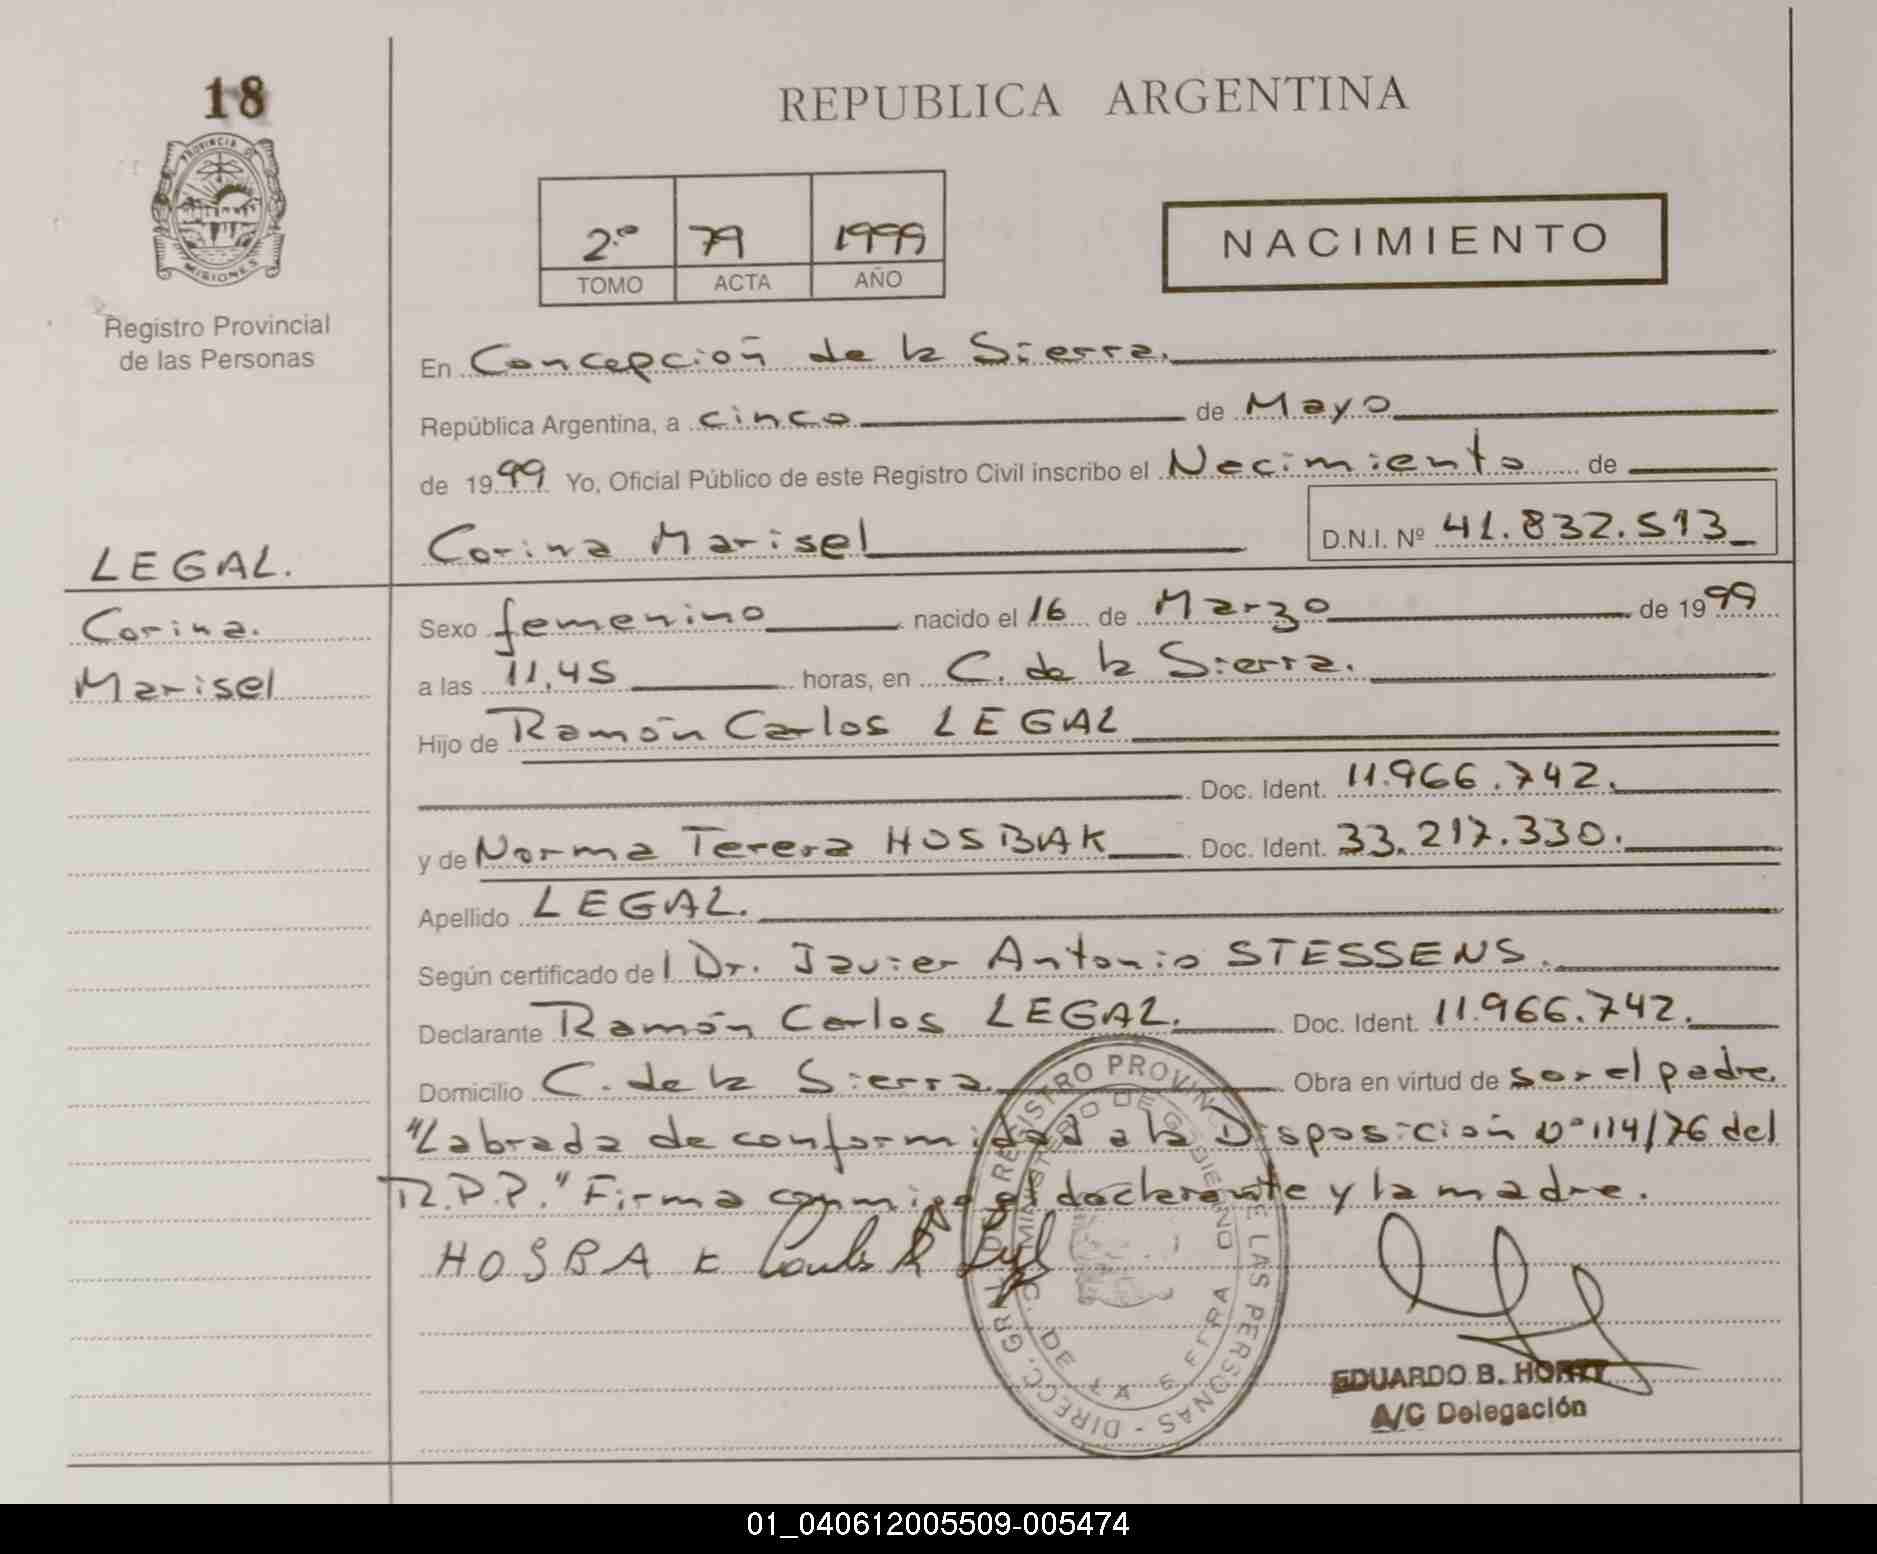 18
PROVINCIA DE
MISIONES
Registro Provincial
de las Personas
LEGAL.
Corina.
Marisel
REPUBLICA ARGENTINA
2.º 79 1999
TOMO ACTA AÑO
NACIMIENTO
En Concepción de la Sierra.
República Argentina, a cinco de Mayo
de 1999 Yo, Oficial Público de este Registro Civil inscribo el Nacimiento de
Corina Marisel D.N.I. Nº 41.832.513
Sexo femenino nacido el 16 de Marzo de 1999
a las 11,45 horas, en C. de la Sierra.
Hijo de Ramón Carlos LEGAL
Doc. Ident. 11.966.742.
y de Norma Teresa HOSBAK Doc. Ident. 33.217.330.
Apellido LEGAL.
Según certificado de l Dr. Javier Antonio STESSENS.
Declarante Ramón Carlos LEGAL. Doc. Ident. 11.966.742.
Domicilio C. de la Sierra. Obra en virtud de ser el padre.
"Labrada de conformidad a la Disposición Nº 114/76 del
R.P.P." Firma conmigo el declarante y la madre.
HOSBAK
DIRECC. GRAL. DEL REGISTRO PROVINC. DE LAS PERSONAS
MINISTERIO DE GOBIERNO
C. DE LA SIERRA
EDUARDO B.
A/C Delegación
01_040612005509-005474